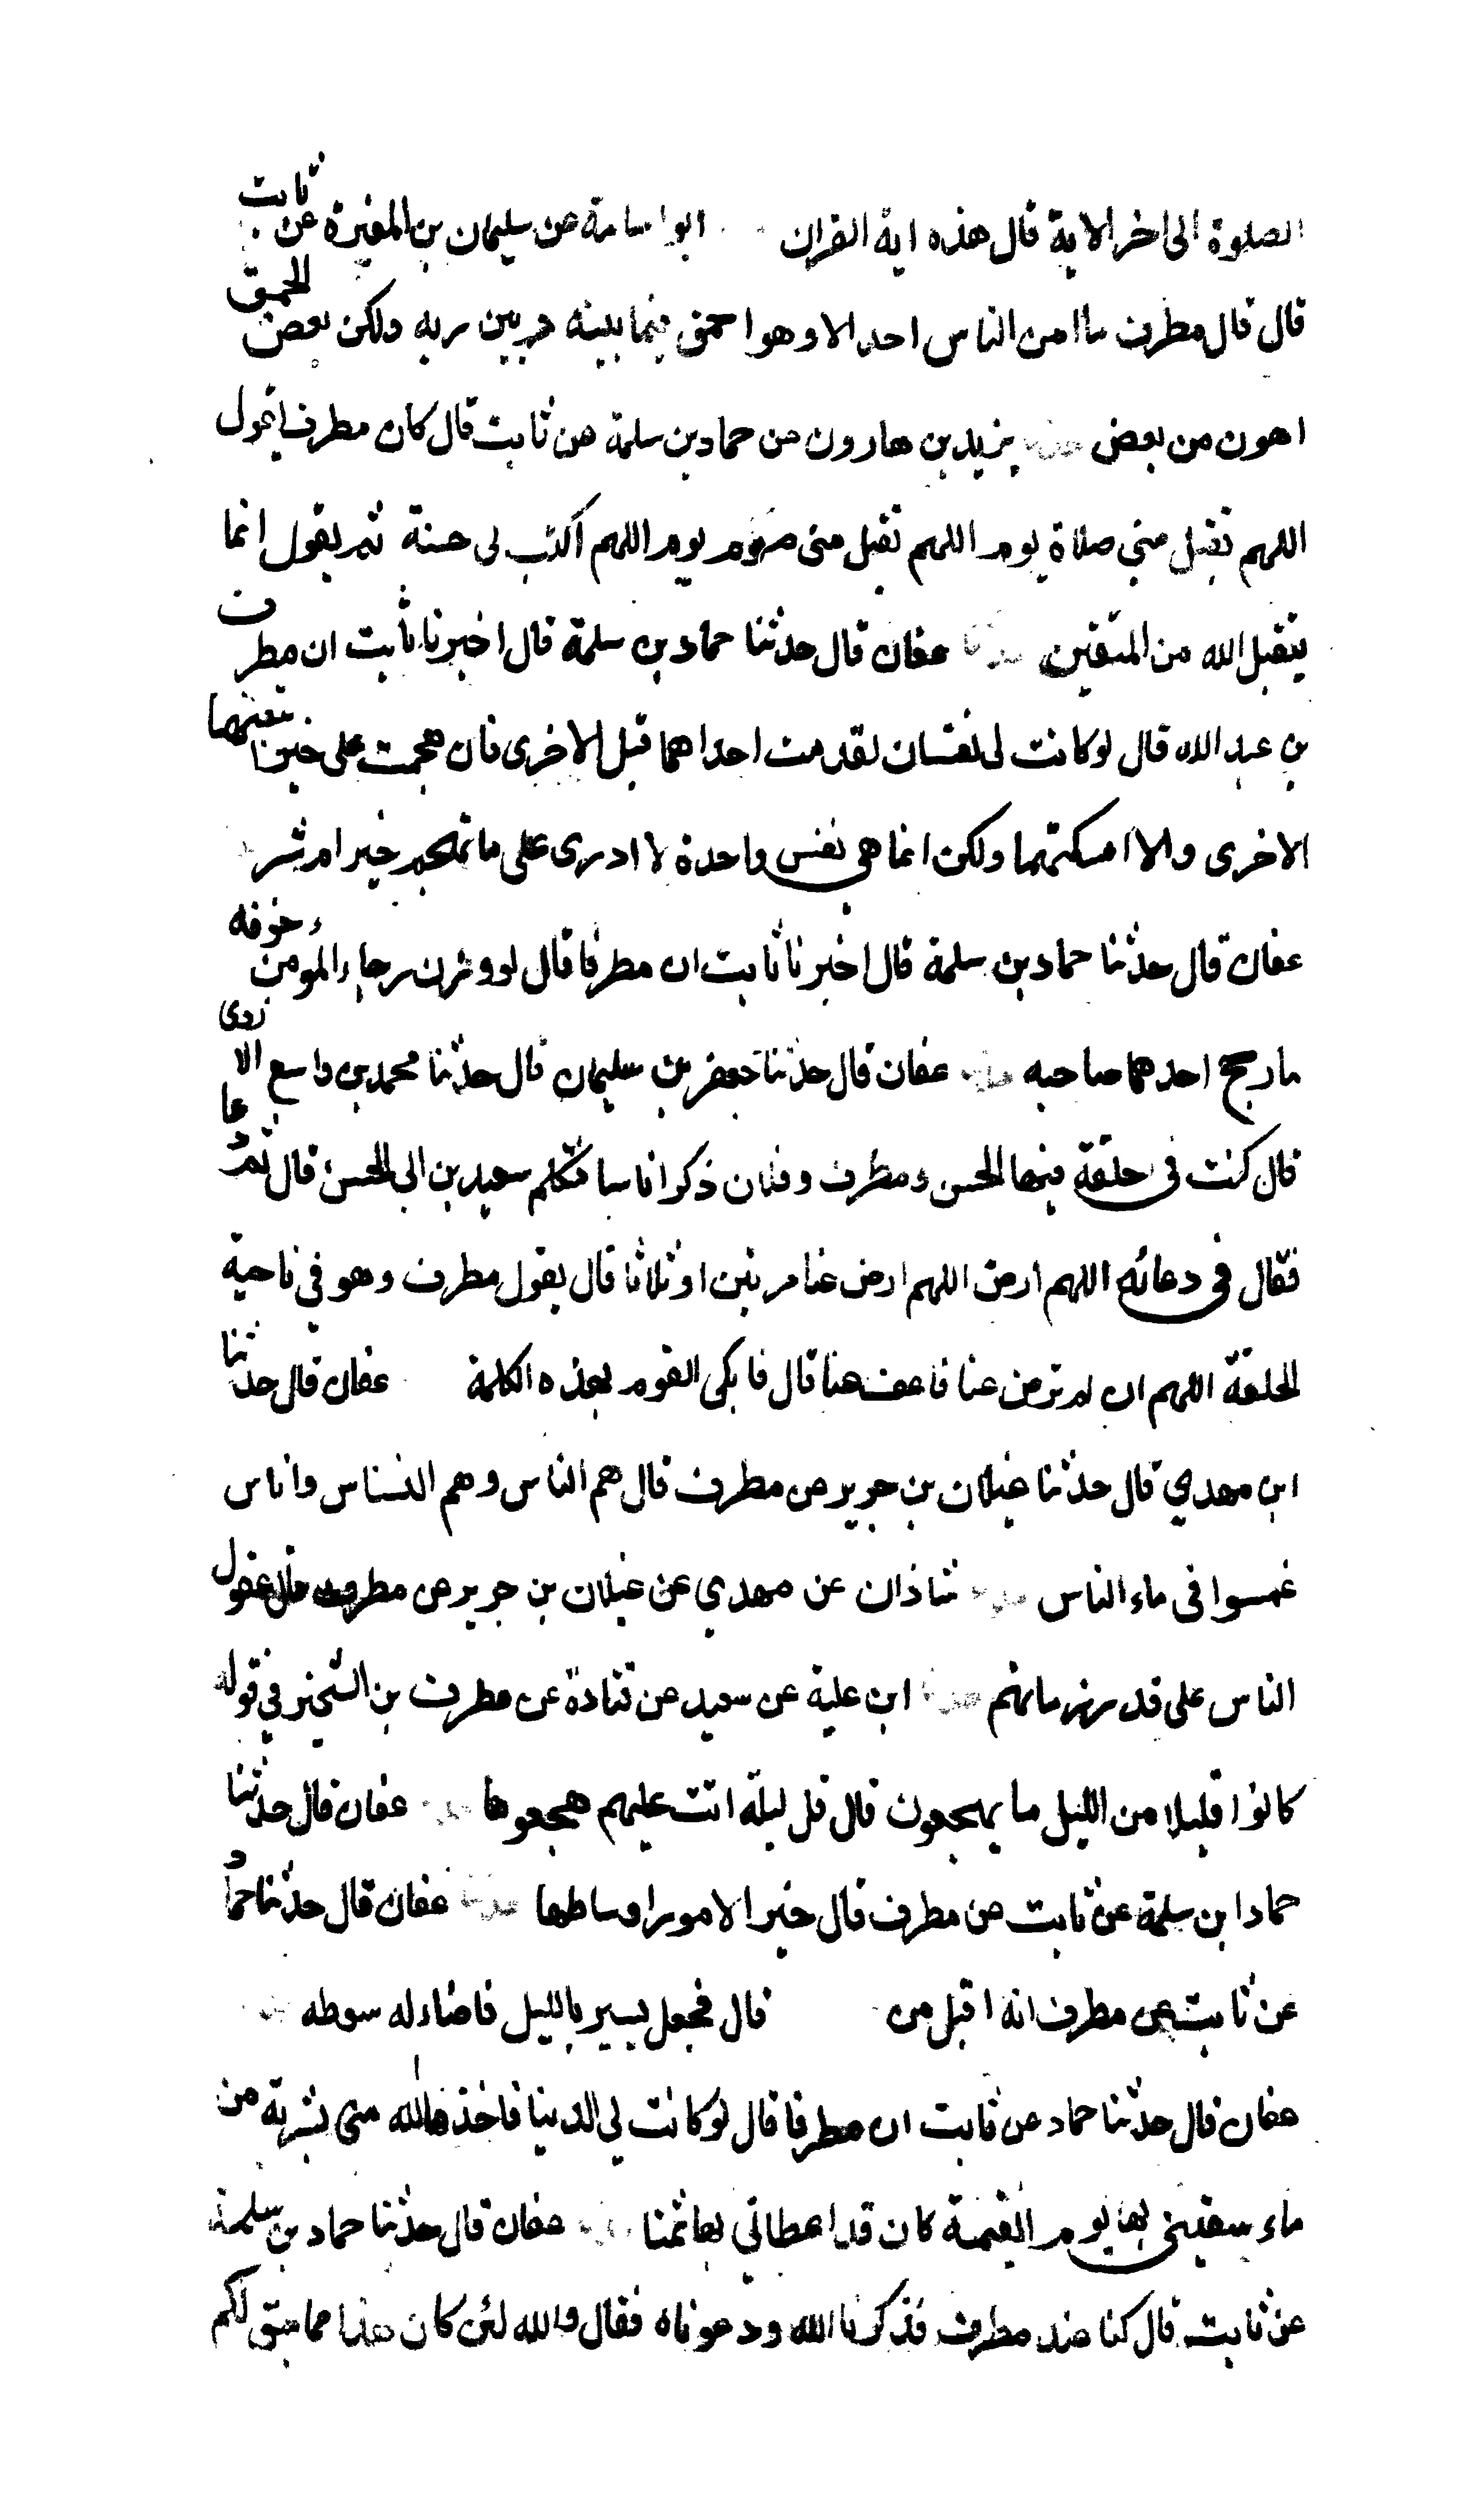 الصلوة الى اخر الاية قال هذه اية القران ابو اسامة عن سليمان بن المغيرة عن ثابت
قال قال مطرف ما من الناس احد الا وهو احمق فيما بينه وبين ربه ولكن بعض الحمق
اهون من بعض حدثنا يزيد بن هارون عن حماد بن سلمة عن ثابت قال كان مطرف يقول
اللهم تقبل مني صلاة يوم اللهم تقبل منى صوم يوم اللهم اكتب لى حسنة ثم يقول انما
يتقبل الله من المتقين حدثنا عفان قال حدثنا حماد بن سلمة قال اخبرنا ثابت ان مطرف
بن عبد الله قال لو كانت لى نفسان لقدمت احداهما قبل الاخرى فان هجمت على خير اتبعتها
الاخرى والا امسكتها ولكن انما هى نفس واحدة لا ادرى على ما تهجم خير ام شر
عفان قال حدثنا حماد بن سلمة قال اخبرنا ثابت ان مطرفا قال لو وزن رجاء المؤمن وخوفه
ما رجح احدهما صاحبه حدثنا عفان قال حدثنا جعفر بن سليمان قال حدثنا محمد بن واسع الازدى
قال كنت فى حلقة فيها الحسن ومطرف وفلان ذكر اناسا فتكلم سعيد بن ابى الحسن قال ثم دعا
فقال فى دعائه اللهم ارض اللهم ارض عنا مرتين او ثلاثا قال يقول مطرف وهو في ناحية
الحلقة اللهم ان لم ترض عنا فاعف عنا قال فابكى القوم بهذه الكلمة عفان قال حدثنا
ابن مهدي قال حدثنا غيلان بن جرير عن مطرف قال هم الناس وهم النسناس واناس
غمسوا فى ماء الناس حدثنا شاذان عن مهدي عن غيلان بن جرير عن مطرف قال عقول
الناس على قدر زمانهم حدثنا ابن علية عن سعيد عن قتادة عن مطرف بن الشخير في قوله
كانوا قليلا من الليل ما يهجعون قال قل ليلة اتت عليهم هجعوها حدثنا عفان قال حدثنا
حماد ابن سلمة عن ثابت عن مطرف قال خير الامور اوساطها حدثنا عفان قال حدثنا حماد
عن ثابت عن مطرف انه اقبل من قال فجعل يسير بالليل فاضاء له سوطه
عفان قال حدثنا حماد عن ثابت ان مطرفا قال لو كانت لي الدنيا فاخذها الله منى بشربة من
ماء سقيني بها يوم القيمة كان قد اعطاني بها ثمنا عفان قال حدثنا حماد بن سلمة
عن ثابت قال كنا عند مطرف فذكرنا الله ودعوناه فقال والله لئن كان هذا مما سبق لكم